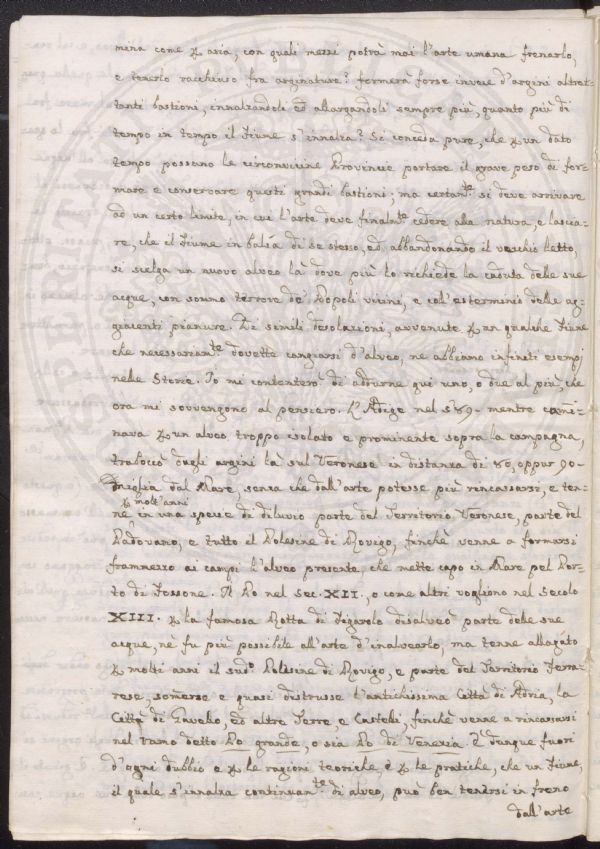 mina come p aria, con quali mezzi potrà mai l'arte umana frenarlo,
e tenerlo racchiuso fra arginature? formerà forse invece d'argini altret-
tanti bastioni, innalzandoli ed allargandoli sempre più, quanto più di
tempo in tempo il Fiume s'innalza? Si conceda pure, che p un dato
tempo possano le circonvicine Provincie portare il grave peso di for-
mare e conservare questi grandi bastioni; ma certan.te si deve arrivare
ad un certo limite, in cui l'arte deve finalm.te cedere alla natura, e lascia-
re, che il Fiume in balìa di se stesso, ed abbandonando il vecchio letto,
si scelga un nuovo alveo là dove più lo richiede la caduta delle sue
acque, con sommo terrore de' Popoli vicini, e col'esterminio delle ag-
giacenti pianure. Di simili desolazioni, avvenute p un qualche Fiume
che necessarian.te dovette cangiarsi d'alveo, ne abbiamo infiniti esempj
nelle Storie. Io mi contenterò di addurne qui uno, o due al più, che
ora mi sovvengono al pensiero. L'Adige nel 589. mentre cam̃i-
nava p un alveo troppo isolato e prominente sopra la campagna,
traboccò dagli argini là sul Veronese in distanza di 80, oppur 90-
miglia dal Mare, senza che dall'arte potesse più rincassarsi, e ten-
p molt'anni
ne in una specie di diluvio parte del Territorio Veronese, parte del
Padovano, e tutto il Polesine di Rovigo, finchè venne a formarsi
frammezzo ai campi l'alveo presente, che mette capo in Mare pel Por-
to di Fossone. Il Po nel Sec. XII, o come altri vogliono nel Secolo
XIII. p la famosa Rotta di Figarolo disalveò parte delle sue
acque, nè fu più possibile all'arte d'inalvearlo, ma tenne allagato
p molti anni il sud.o Polesine di Rovigo, e parte del Territorio Ferra-
rese, som̃erse e quasi distrusse l'antichissima Città di Adria, la
Città di Gavello, ed altre Terre, e Castelli, finchè venne a rincasarsi
nel ramo detto Po grande, o sia Po di Venezia. È dunque fuori
d'ogni dubbio e p le ragioni teoriche, e p le pratiche, che un Fiume,
il quale s'innalza continuan.te di alveo, può ben tenersi in freno
dall'arte